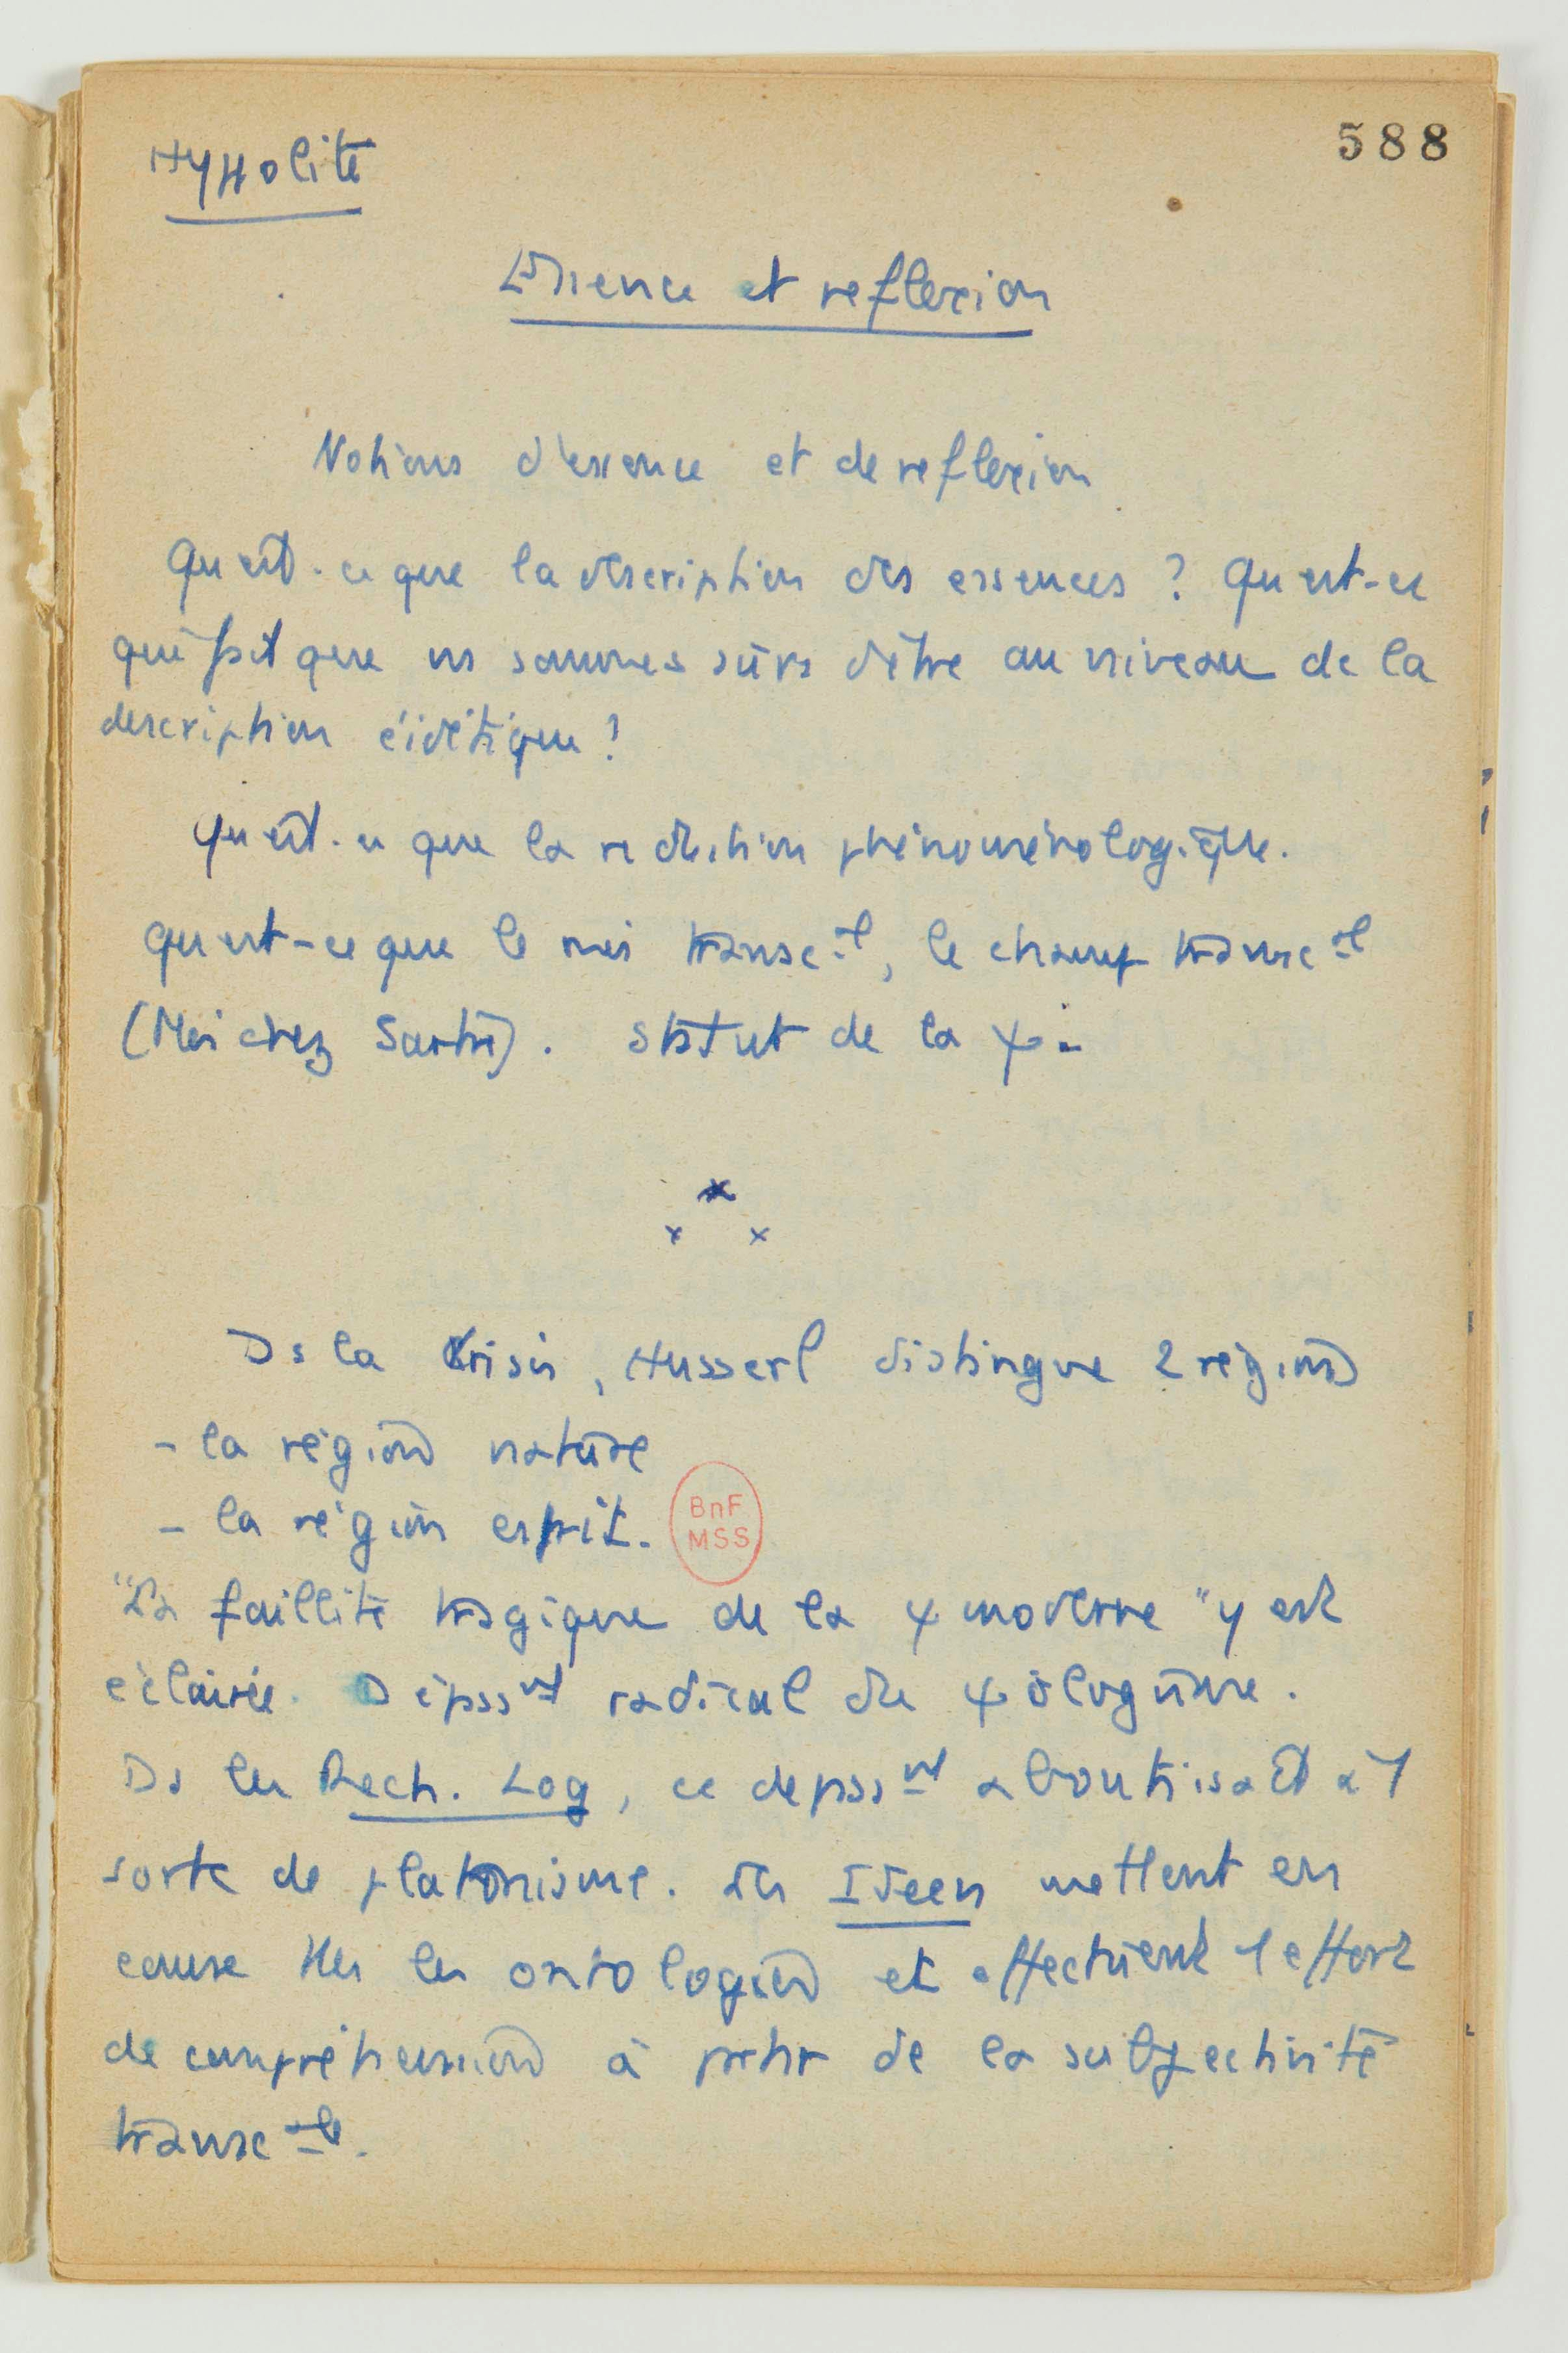 Hyppolite
588
Essence et reflexion
Notions d'essence et de reflexion
Qu'est-ce que la description des essences ? Qu'est-ce
qui fait que ns sommes sûrs d'être au niveau de la
description éidétique ?
Qu'est-ce que la reduction phénoménologique.
Qu'est-ce que le moi transc-al, le champ transc-al
(Moi chez Sartre). Statut de la φ.
Ds la Krisis, Husserl distingue 2 régions
- la région nature
- la région esprit.
BnF
MSS
"La faillite tragique de la φ moderne" y est
éclairée. Dépasst radical du ψologisme.
Ds les Rech. Log, ce depasst aboutissait à 1
sorte de platonisme. Les Ideen mettent en
cause ttes les ontologies et effectuent 1 effort
de compréhension à partir de la subjectivité
transc-ale.